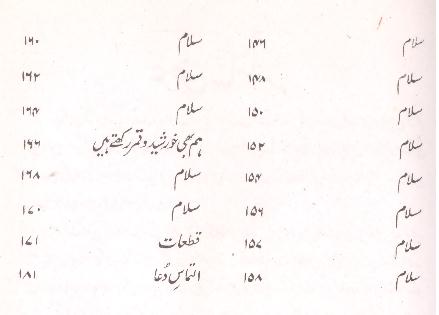 سلام ۱۴۶ سلام ۱۶۰
سلام ۱۴۸ سلام ۱۶۲
سلام ۱۵۰ سلام ۱۶۴
سلام ۱۵۲ ہم بھی خورشید و قمر رکھتے ہیں ۱۶۶
سلام ۱۵۴ سلام ۱۶۸
سلام ۱۵۶ سلام ۱۷۰
سلام ۱۵۷ قطعات ۱۷۱
سلام ۱۵۸ التماسِ دُعا ۱۸۱